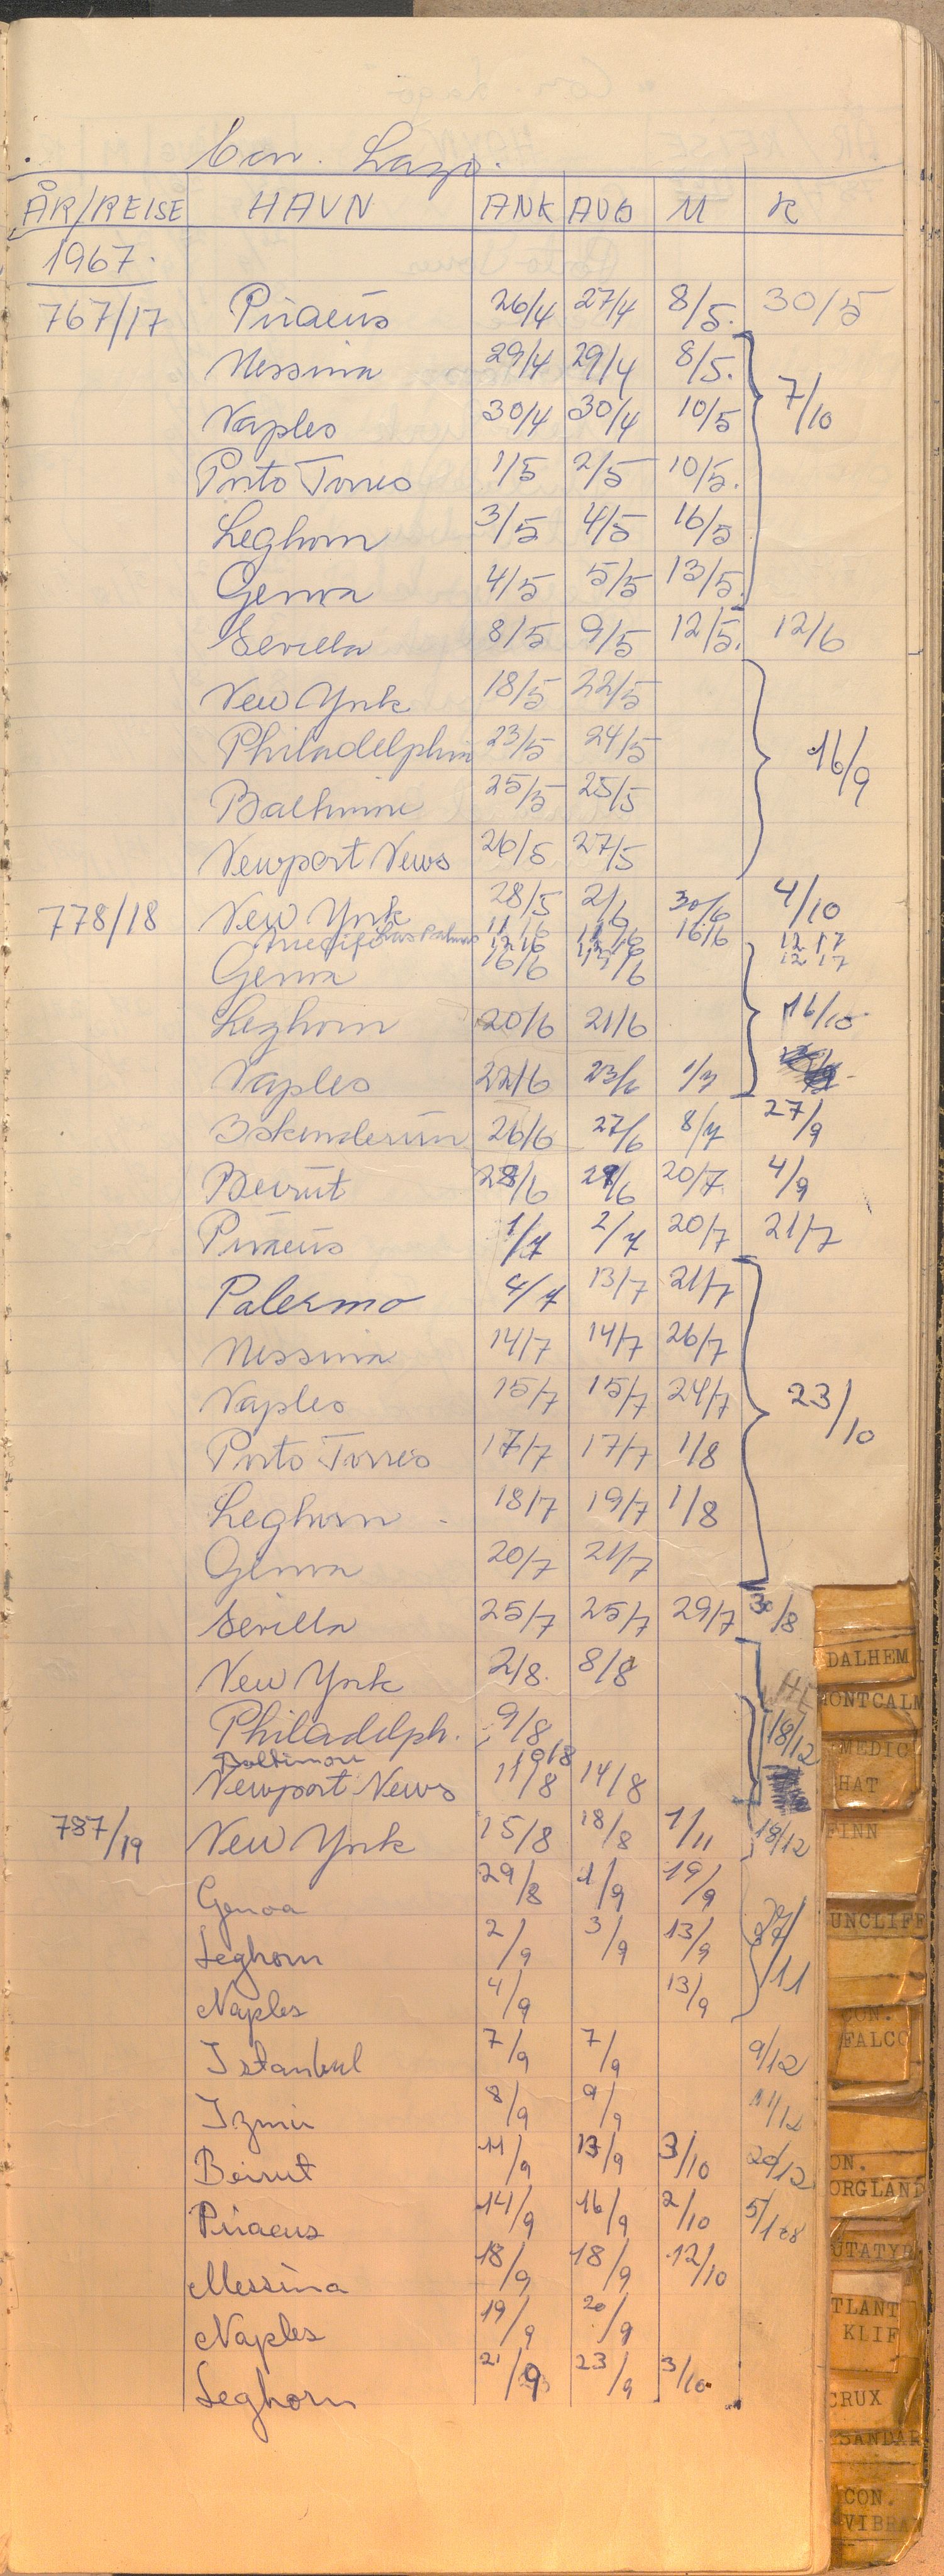 Con. Lago.
ÅR/REISE HAVN ANK AVG M K
1967.
767/17 Piraeus 26/4 27/4 8/5. 30/5
Messina 29/4 29/4 8/5.
Naples 30/4 30/4 10/5 7/10
Porto Torres 1/5 2/5 10/5.
Leghorn 3/5 4/5 16/5
Genoa 4/5 5/5 13/5.
Sevilla 8/5 9/5 12/5. 12/6
New York 18/5 22/5
Philadelphia 23/5 24/5 16/9
Baltimore 25/5 25/5
Newport News 26/5 27/5
778/18 New York 28/5 2/6 30/6 4/10
Las Palmas 12/6 16/6 12/7
Genoa 16/6 12/7
Leghorn 20/6 21/6 16/10
Naples 22/6 23/6 1/7
Iskenderun 26/6 27/6 8/7 27/9
Beirut 28/6 29/6 20/7 4/9
Piraeus 1/7 2/7 20/7 21/7
Palermo 4/7 13/7 21/7
Messina 14/7 14/7 26/7
Naples 15/7 15/7 24/7 23/10
Porto Torres 17/7 17/7 1/8
Leghorn 18/7 19/7 1/8
Genoa 20/7 21/7
Sevilla 25/7 25/7 29/7 30/8
New York 2/8. 8/8
Philadelph. 9/8 18/12
Baltimore
Newport News 11/8 14/8
787/19 New York 15/8 18/8 1/11 18/12
Genoa 29/8 1/9 19/9
Leghorn 2/9 3/9 13/9 27/11
Naples 4/9 13/9
Istanbul 7/9 7/9 9/12
Izmir 8/9 9/9 11/12
Beirut 11/9 13/9 3/10 20/12
Piraeus 14/9 16/9 2/10 5/1 68
Messina 18/9 18/9 12/10
Naples 19/9 20/9
Leghorn 21/9 23/9 3/10.
DALHEM
MONTCALM
MEDIC
HAT
FINN
UNCLIFF
CON.
FALCO
ON.
ORGLAND
UTATYR
TLANT
KLIF
CRUX
SANDAR
CON.
VIBRA